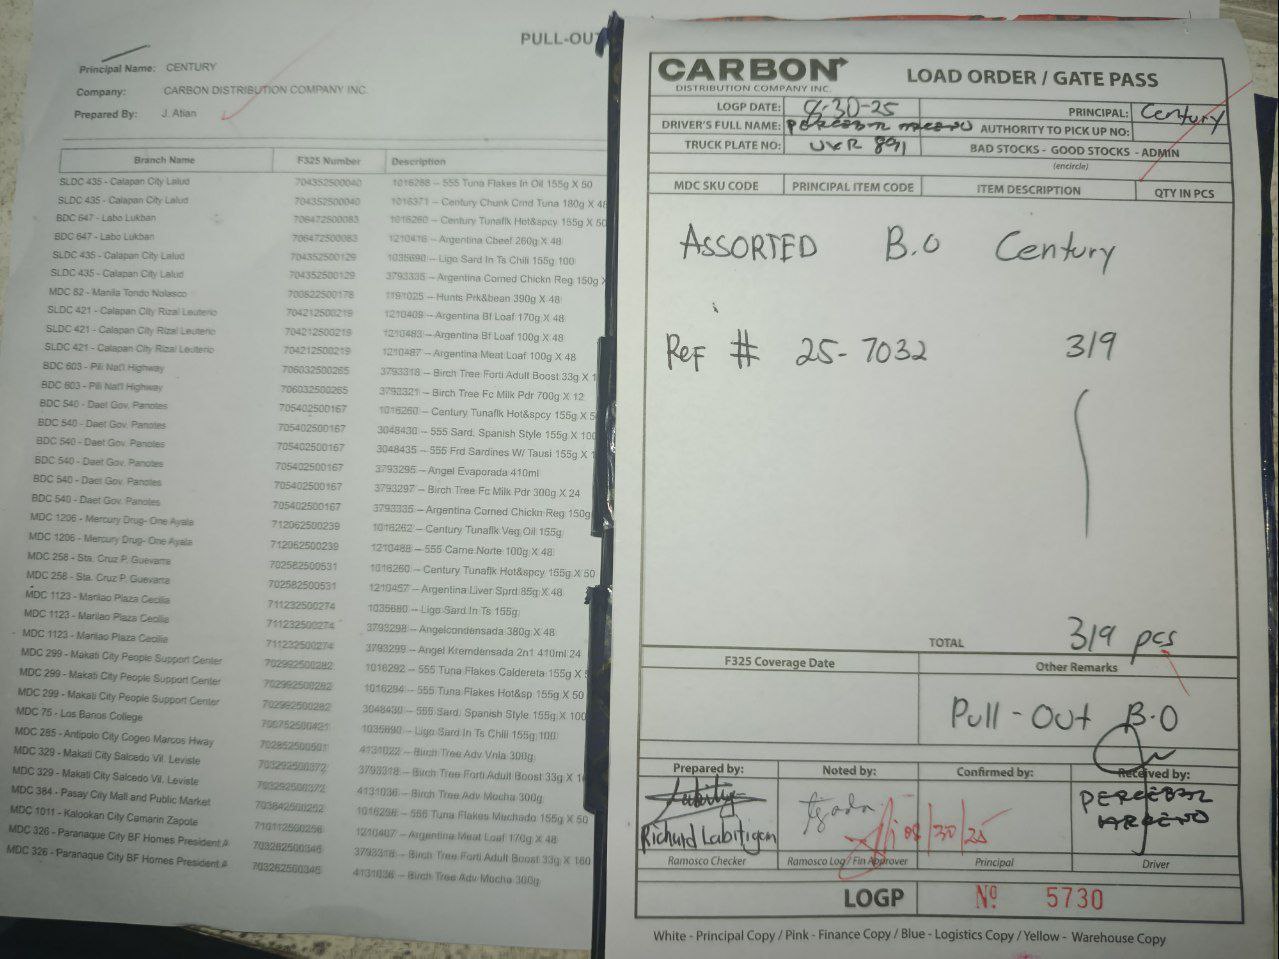 PULL-OUT
Principal Name: CENTURY
Company: CARBON DISTRIBUTION COMPANY INC.
Prepared By: J. Atian
Branch Name F325 Number Description
SLDC 435 - Calapan City Lalud 704352500040 1016288 -- 555 Tuna Flakes In Oil 155g X 50
SLDC 435 - Calapan City Lalud 704352500040 1016371 -- Century Chunk Cmd Tuna 180g X 48
BDC 647 - Labo Lukban 706472500083 1016260 -- Century Tunaflk Hot&spcy 155g X 50
BDC 647 - Labo Lukban 706472500083 1210416 -- Argentina Cbeef 260g X 48
SLDC 435 - Calapan City Lalud 704352500129 1035690 -- Ligo Sard In Ts Chili 155g 100
SLDC 435 - Calapan City Lalud 704352500129 3793335 -- Argentina Corned Chickn Reg 150g
MDC 52 - Manila Tondo Nolasco 700522500178 1191025 -- Hunts Prk&bean 390g X 48
SLDC 421 - Calapan City Rizal Leuterio 704212500219 1210409 -- Argentina Bf Loaf 170g X 48
SLDC 421 - Calapan City Rizal Leuterio 704212500219 1210483 -- Argentina Bf Loaf 100g X 48
SLDC 421 - Calapan City Rizal Leuterio 704212500219 1210487 -- Argentina Meat Loaf 100g X 48
BDC 603 - Pili Nat'l Highway 706032500265 3793318 -- Birch Tree Forti Adult Boost 33g X
BDC 603 - Pili Nat'l Highway 706032500265 3793321 -- Birch Tree Fc Milk Pdr 700g X 12
BDC 540 - Daet Gov. Panotes 705402500167 1016260 -- Century Tunaflk Hot&spcy 155g X
BDC 540 - Daet Gov. Panotes 705402500167 3048430 -- 555 Sard. Spanish Style 155g X 100
BDC 540 - Daet Gov. Panotes 705402500167 3048435 -- 555 Frd Sardines W/ Tausi 155g X
BDC 540 - Daet Gov. Panotes 705402500167 3793295 -- Angel Evaporada 410ml
BDC 540 - Daet Gov. Panotes 705402500167 3793297 -- Birch Tree Fc Milk Pdr 300g X 24
BDC 540 - Daet Gov. Panotes 705402500167 3793335 -- Argentina Corned Chickn Reg 150g
MDC 1206 - Mercury Drug- One Ayala 712062500239 1016262 -- Century Tunaflk Veg Oil 155g
MDC 1206 - Mercury Drug- One Ayala 712062500239 1210488 -- 555 Carne Norte 100g X 48
MDC 258 - Sta. Cruz P. Guevarra 702582500531 1016260 -- Century Tunaflk Hot&spcy 155g X 50
MDC 258 - Sta. Cruz P. Guevarra 702582500531 1210457 -- Argentina Liver Sprd 85g X 48
MDC 1123 - Marilao Plaza Cecilia 711232500274 1035680 -- Ligo Sard In Ts 155g
MDC 1123 - Marilao Plaza Cecilia 711232500274 3793298 -- Angelcondensada 380g X 48
MDC 1123 - Marilao Plaza Cecilia 711232500274 3793299 -- Angel Kremdensada 2n1 410ml 24
MDC 299 - Makati City People Support Center 702992500282 1016292 -- 555 Tuna Flakes Caldereta 155g X
MDC 299 - Makati City People Support Center 702992500282 1016294 -- 555 Tuna Flakes Hot&sp 155g X 50
MDC 299 - Makati City People Support Center 702992500282 3048430 -- 555 Sard. Spanish Style 155g X 100
MDC 75 - Los Banos College 700752500421 1035690 -- Ligo Sard In Ts Chili 155g 100
MDC 285 - Antipolo City Cogeo Marcos Hway 702852500501 4131022 -- Birch Tree Adv Vnla 300g
MDC 329 - Makati City Salcedo Vil. Leviste 703292500372 3793318 -- Birch Tree Forti Adult Boost 33g X
MDC 329 - Makati City Salcedo Vil. Leviste 703292500372 4131036 -- Birch Tree Adv Mocha 300g
MDC 384 - Pasay City Mall and Public Market 703842500252 1016298 -- 555 Tuna Flakes Mechado 155g X 50
MDC 1011 - Kalookan City Camarin Zapote 710112500256 1210407 -- Argentina Meat Loaf 170g X 48
MDC 326 - Paranaque City BF Homes President A 703262500346 3793318 -- Birch Tree Forti Adult Boost 33g X 160
MDC 326 - Paranaque City BF Homes President A 703262500346 4131036 -- Birch Tree Adv Mocha 300g
CARBON
DISTRIBUTION COMPANY INC.
LOAD ORDER / GATE PASS
LOGP DATE: 8-30-25 PRINCIPAL: Century
DRIVER'S FULL NAME: AUTHORITY TO PICK UP NO:
TRUCK PLATE NO: UVR 891 BAD STOCKS - GOOD STOCKS - ADMIN
(encircle)
MDC SKU CODE PRINCIPAL ITEM CODE ITEM DESCRIPTION QTY IN PCS
ASSORTED B.O Century
Ref # 25-7032 319
TOTAL 319 pcs
F325 Coverage Date Other Remarks
Pull-Out B.O
Prepared by: Noted by: Confirmed by: Received by:
Richard Labitigan 08/30/25
Ramosco Checker Ramosco Log / Fin Approver Principal Driver
LOGP Nº 5730
White - Principal Copy / Pink - Finance Copy / Blue - Logistics Copy / Yellow - Warehouse Copy